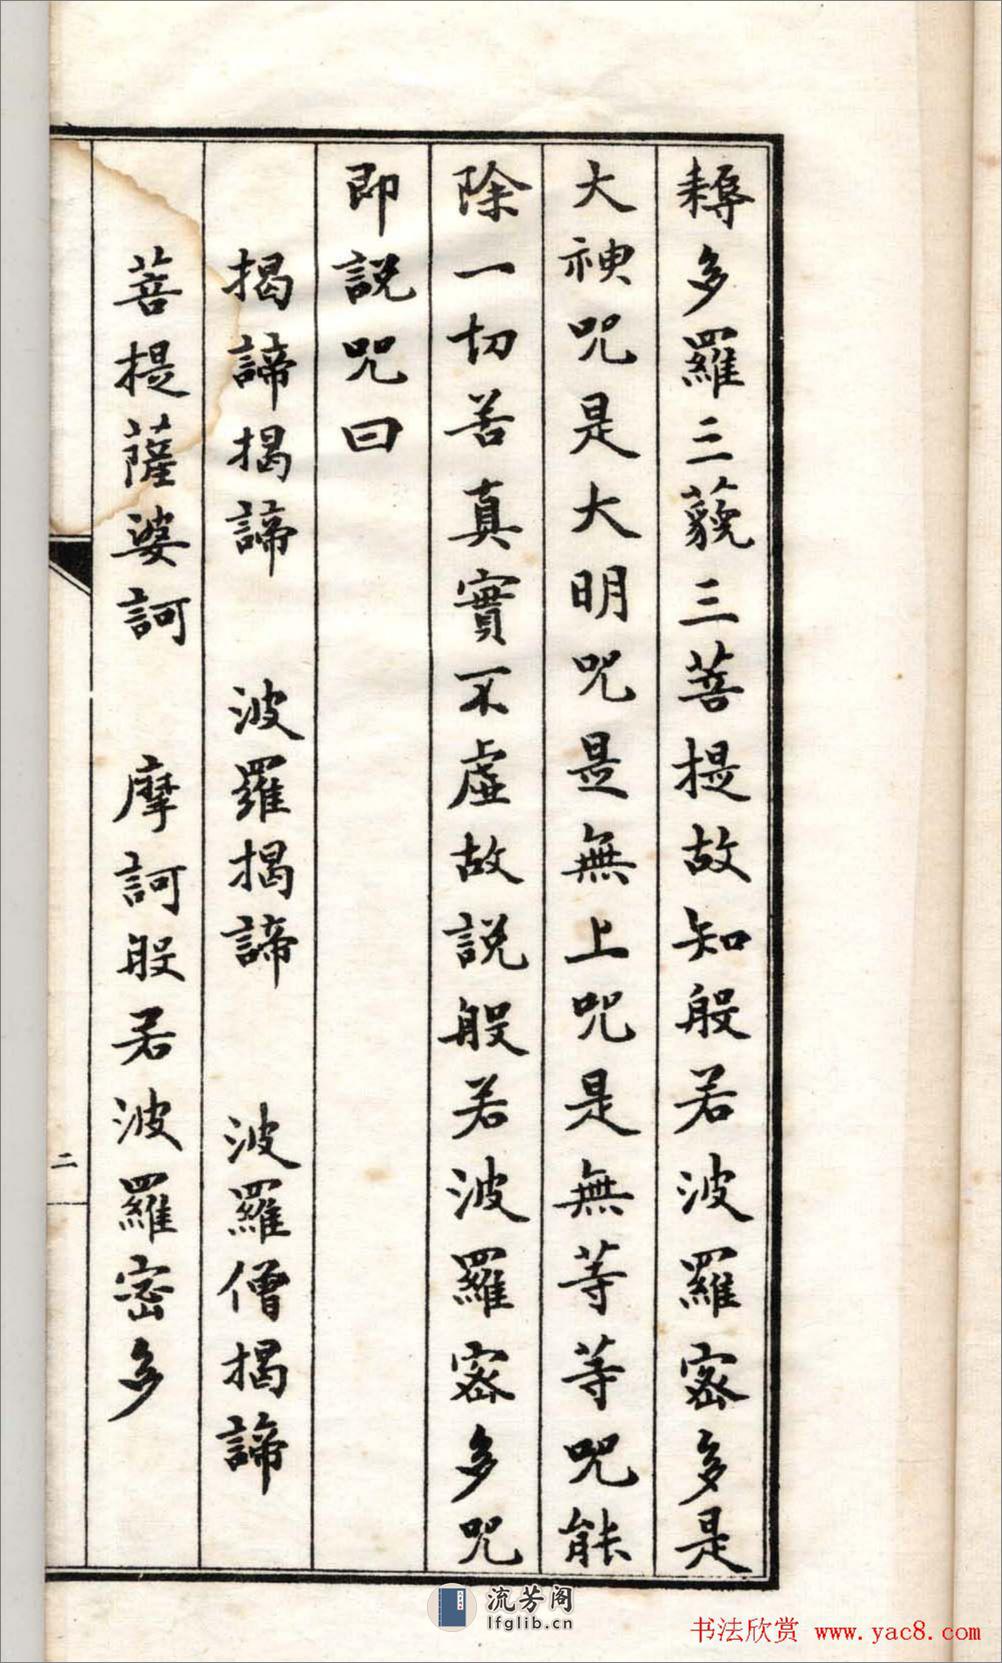 耨多羅三藐三菩提故知般若波羅密多是
大神咒是大明咒是無上咒是無等等咒能
除一切苦真實不虛故説般若波羅密多咒
即説咒曰
揭諦揭諦 波羅揭諦 波羅僧揭諦
菩提薩婆訶 摩訶般若波羅密多
二
流芳阁
lfglib.cn
书法欣赏 www.yac8.com